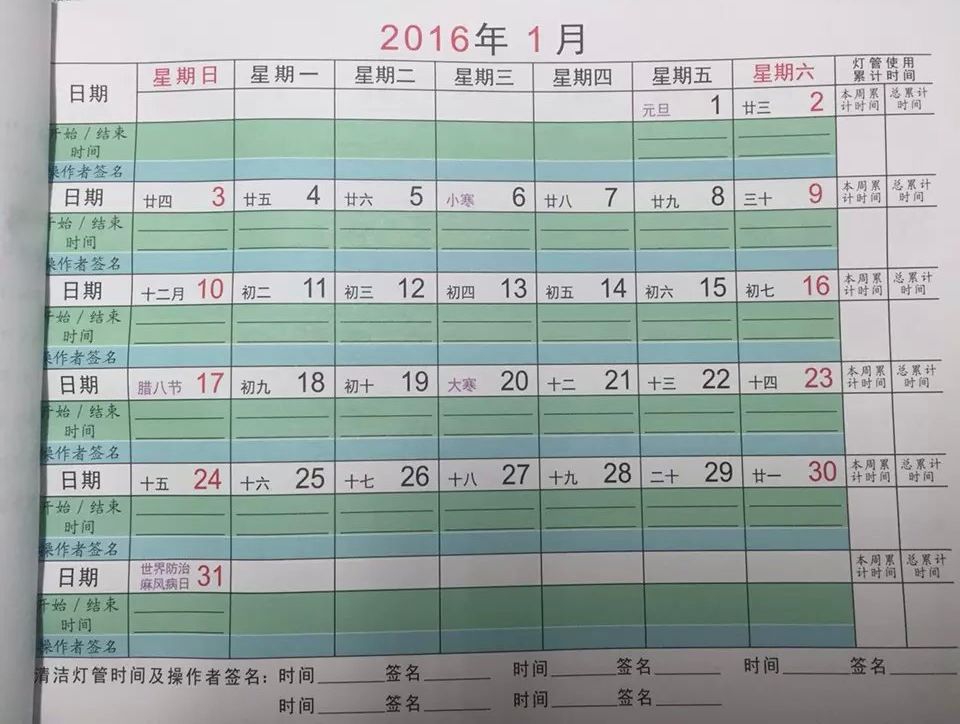 2016年 1 月
日期 星期日 星期一 星期二 星期三 星期四 星期五 星期六 灯管使用
累计时间
元旦 1 廿三 2 本周累计时间 总累计时间
开始 / 结束
时间
操作者签名
日期 廿四 3 廿五 4 廿六 5 小寒 6 廿八 7 廿九 8 三十 9 本周累计时间 总累计时间
开始 / 结束
时间
操作者签名
日期 十二月 10 初二 11 初三 12 初四 13 初五 14 初六 15 初七 16 本周累计时间 总累计时间
开始 / 结束
时间
操作者签名
日期 腊八节 17 初九 18 初十 19 大寒 20 十二 21 十三 22 十四 23 本周累计时间 总累计时间
开始 / 结束
时间
操作者签名
日期 十五 24 十六 25 十七 26 十八 27 十九 28 二十 29 廿一 30 本周累计时间 总累计时间
开始 / 结束
时间
操作者签名
日期 世界防治麻风病日 31 本周累计时间 总累计时间
开始 / 结束
时间
操作者签名
清洁灯管时间及操作者签名：时间______签名______ 时间______签名______ 时间______签名______
时间______签名______ 时间______签名______